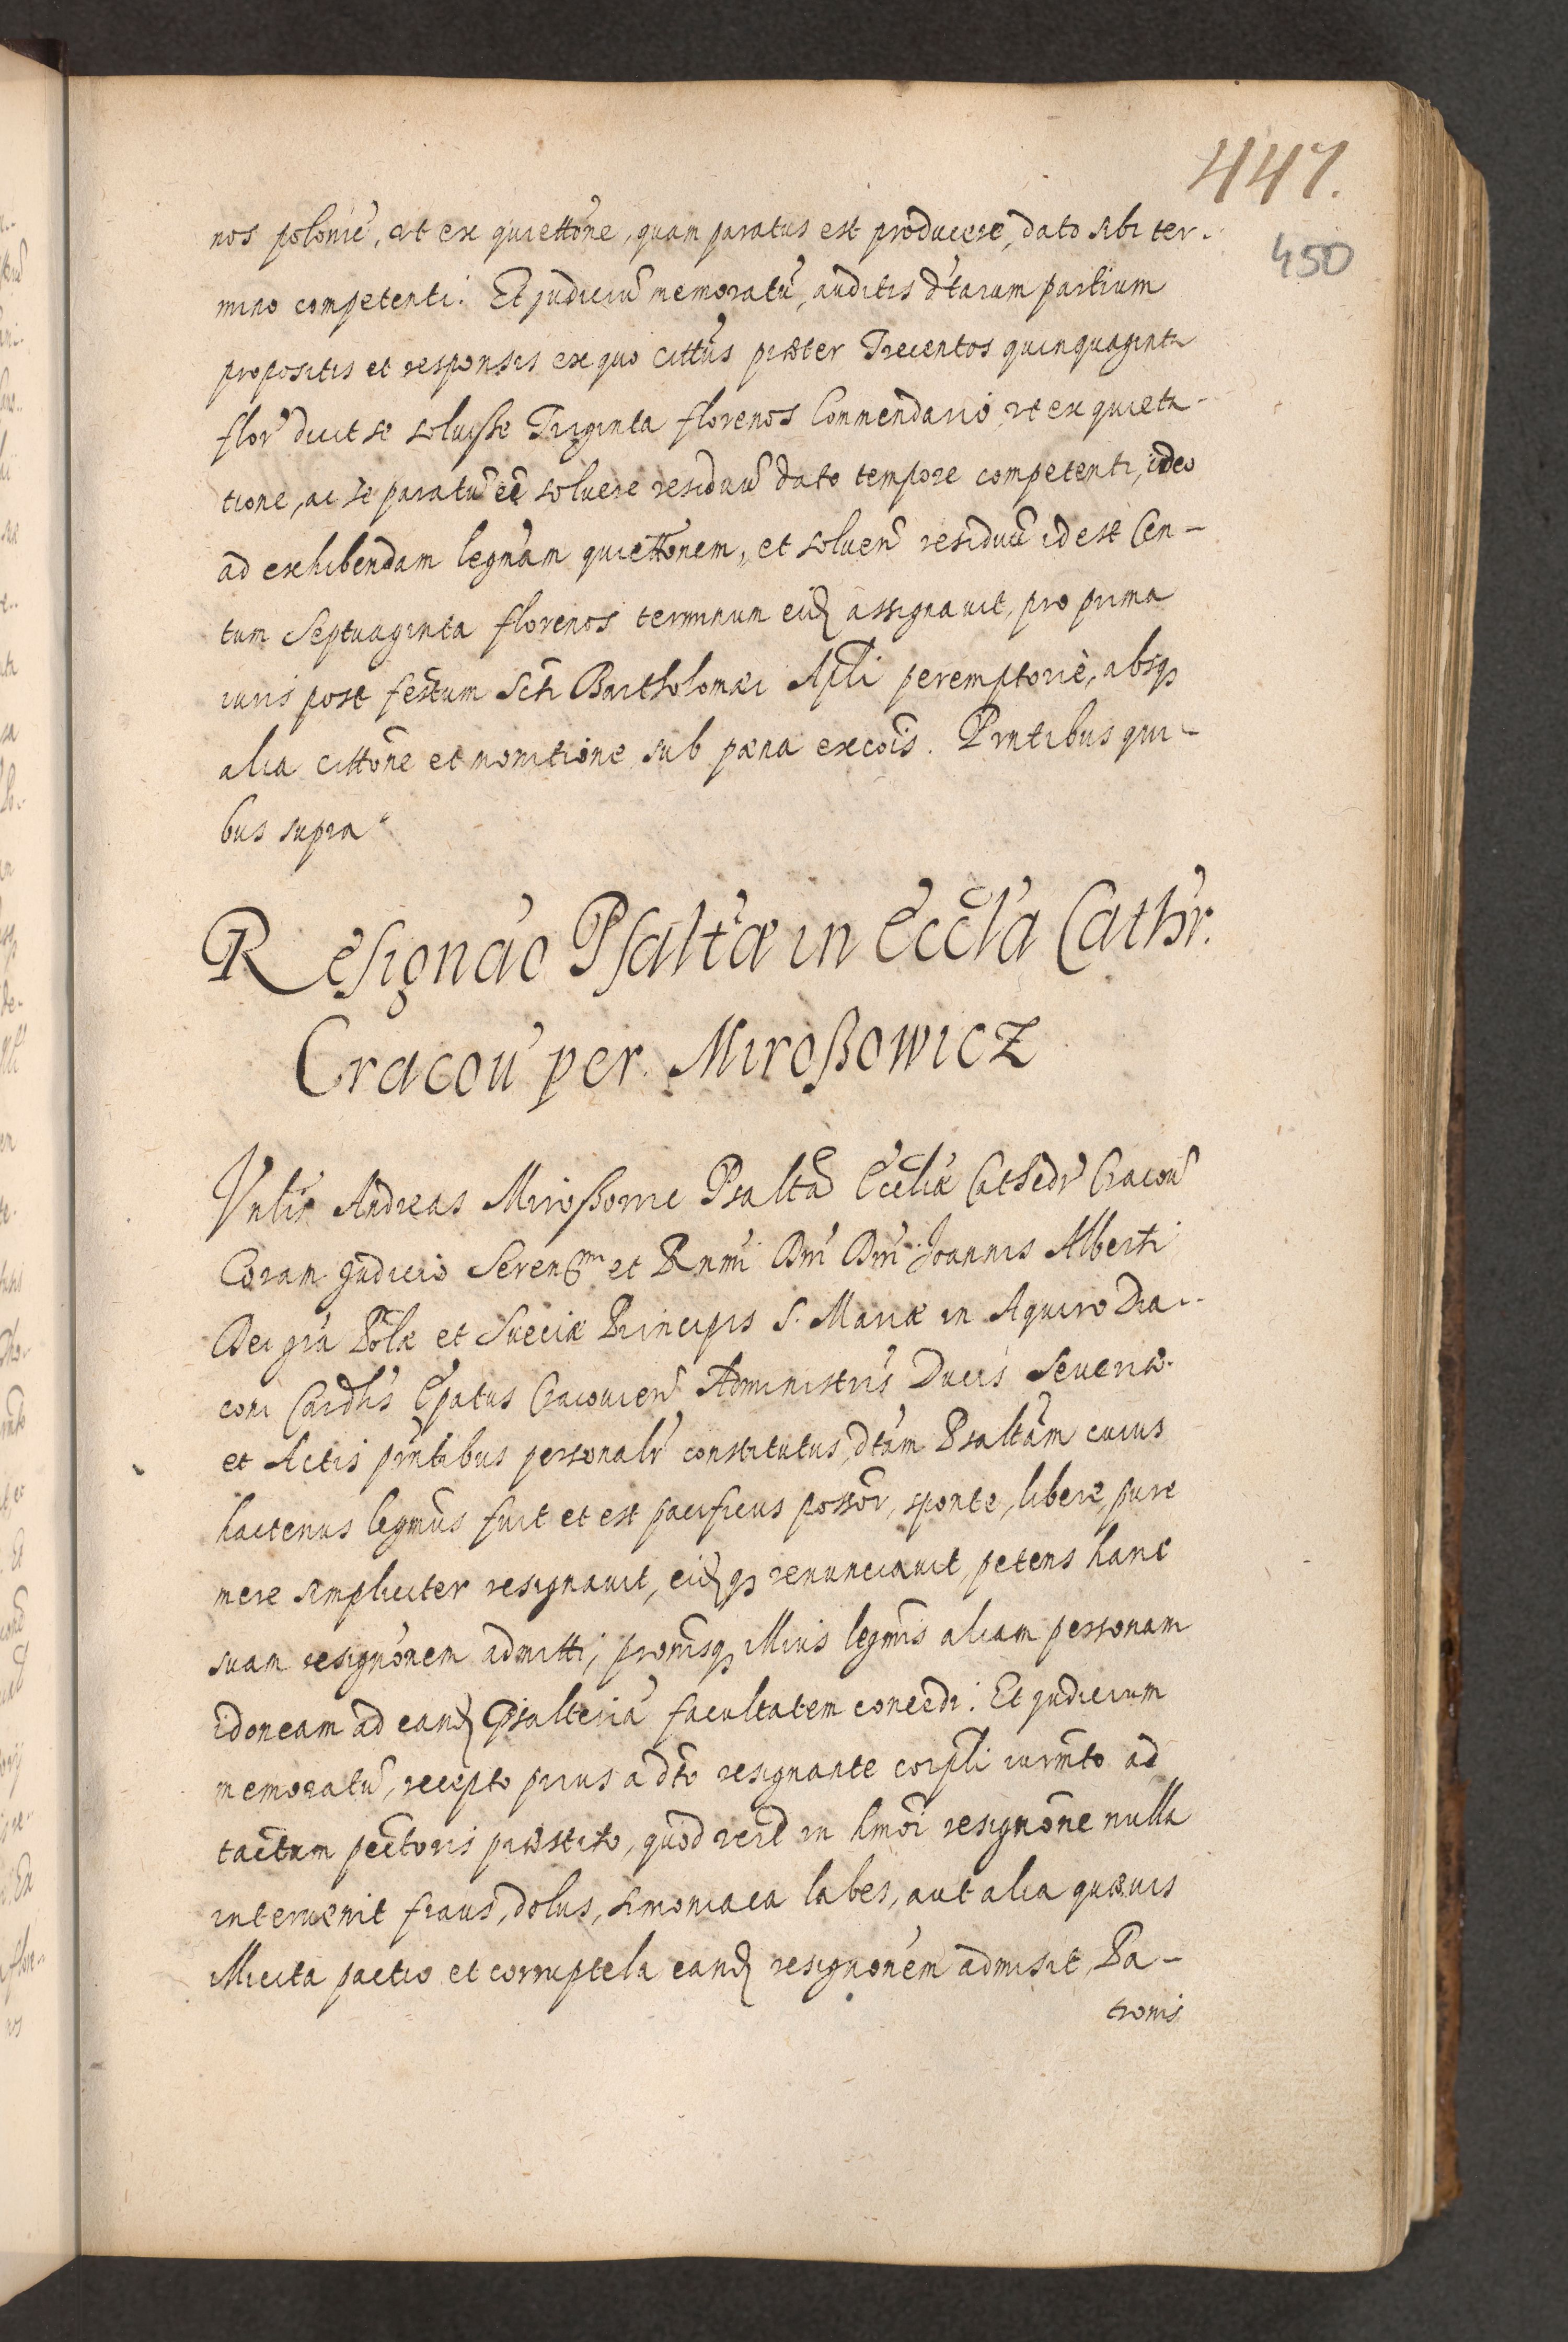 447.
450
nos polonic̃, ut ex quiettõne, quam paratus est producere, dato sibi ter-
mino competenti. Et judiciũ memoratũ, auditis dtarum partium
propositis et responsis ex quo cittũs præter Trecentos quinquaginta
flor̃ dicit se soluisse Triginta florenos Commendario, ut ex quieta-
tione, ac se paratũ eẽ soluere residuũ dato tempore competenti, ideo
ad exhibendam legnãm quiettõnem, et soluen̄ residuũ id est Cen-
tum Septuaginta florenos terminum eid assignauit, pro prima
iuris post festum Scti Bartholomæi Apli peremptoriè, absq
alia cittõne et monitione sub pœna excõis. Pntibus qui-
bus supra
Resignão Psaltæ in Eccl̃a Cathr.
Cracou̅ per Miroßowicz
Vnlis Andreas Miroßowic Psalta Eccl̃iæ Cathedr̃ Cracou̅
Coram Judicio Serenmi et Rnmi Dni Dni Joannis Alberti
Dei grã Pol̃æ et Sueciæ Principis S. Mariæ in Aquiro Dia-
coni Cardlis Ep̃atus Cracouien̄ Administris Ducis Seueriæ
et Actis pntibus personalr̃ constitutus, dtam Psaltãm cuius
hactenus legmũs fuit et est pacificus possõr, sponte, libere, pure
mere simpliciter resignauit, eidq renunciauit, petens hanc
suam resignõnem admitti, pronisq illius legmis aliam personam
idoneam ad eand Psalteriã facultatem concedi. Et judicium
memoratũ, recepto prius a dto resignante corpli iurmto ad
tactum pectoris præstito, quod in hmoi resignõne nulla
interuenit fraus, dolus, simoniaca labes, aut alia quæuis
illicita pactio et corruptela eand resignõnem admisit, Pa-
tronis